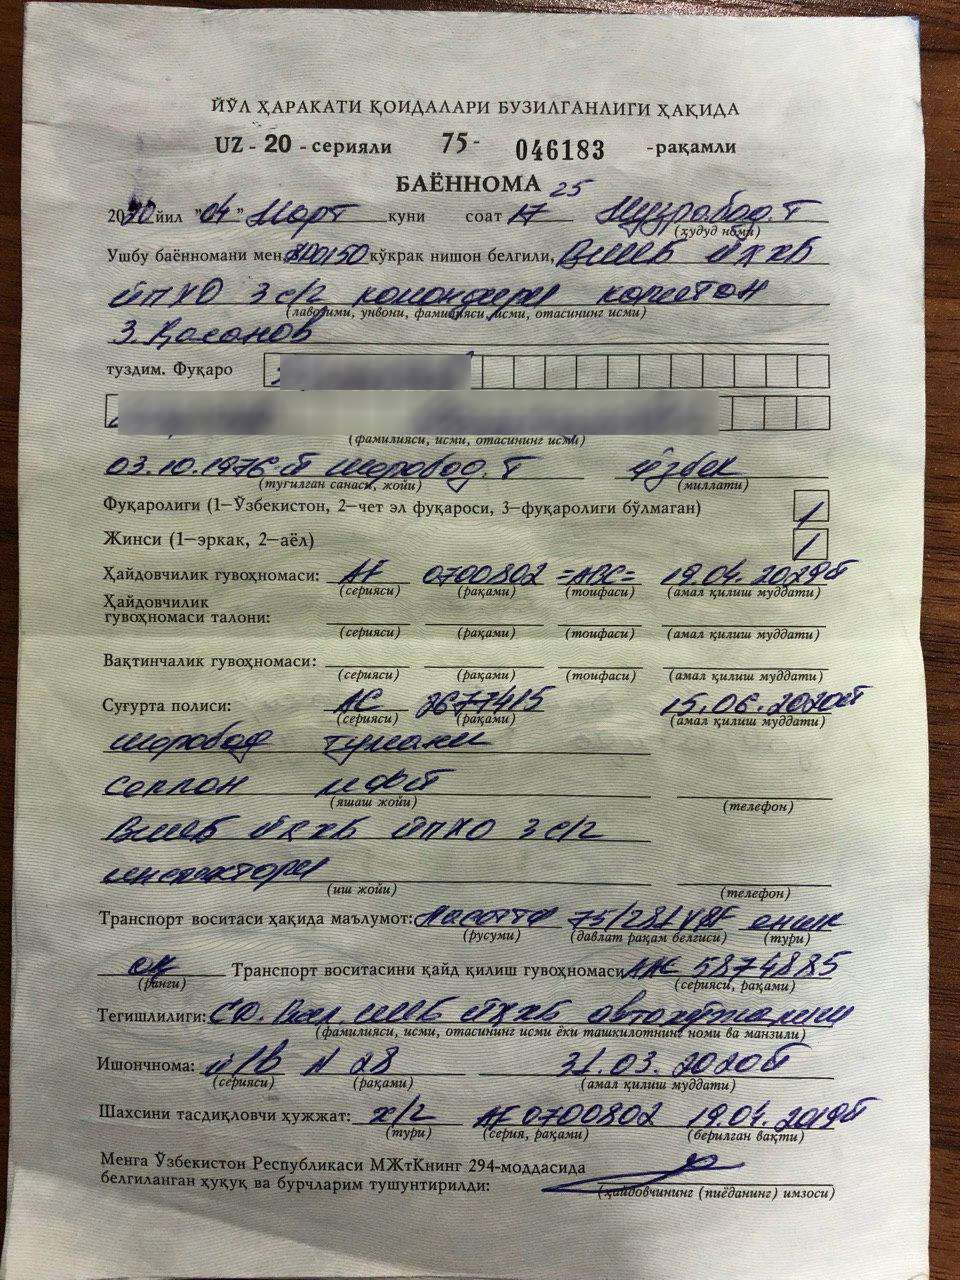 ЙЎЛ ҲАРАКАТИ ҚОИДАЛАРИ БУЗИЛГАНЛИГИ ҲАҚИДА
UZ - 20 - серияли 75- 046183 -рақамли
БАЁННОМА
2020 йил "04" Март куни соат 17 25 Музработ.Т
(ҳудуд номи)
Ушбу баённомани мен, кўкрак нишон белгили, ЙҲХБ
ЙПХО 3 с/2 капитан
(лавозими, унвони, фамилияси, исми, отасининг исми)
З. Ҳасанов
туздим. Фуқаро
(фамилияси, исми, отасининг исми)
03.10.1976 й Шеробод.Т ўзбек
(туғилган санаси, жойи) (миллати)
Фуқаролиги (1–Ўзбекистон, 2–чет эл фуқароси, 3–фуқаролиги бўлмаган) 1
Жинси (1–эркак, 2–аёл) 1
Ҳайдовчилик гувоҳномаси: AF 0700802 =АВС= 19.04.2029й
(серияси) (рақами) (тоифаси) (амал қилиш муддати)
Ҳайдовчилик
гувоҳномаси талони:
(серияси) (рақами) (тоифаси) (амал қилиш муддати)
Вақтинчалик гувоҳномаси:
(серияси) (рақами) (тоифаси) (амал қилиш муддати)
Суғурта полиси: АС 2677415 15.06.2020й
(серияси) (рақами) (амал қилиш муддати)
Шеробод тумани
МФЙ
(яшаш жойи) (телефон)
ЙҲХБ ЙПХО 3 с/2
инспектори
(иш жойи) (телефон)
Транспорт воситаси ҳақида маълумот: Ласетти 75/281 енгил
(русуми) (давлат рақам белгиси) (тури)
оқ Транспорт воситасини қайд қилиш гувоҳномаси 5874885
(ранги) (серияси, рақами)
Тегишлилиги: ЙҲХБ
(фамилияси, исми, отасининг исми ёки ташкилотнинг номи ва манзили)
Ишончнома: й/В N 28 31.03.2020й
(серияси) (рақами) (амал қилиш муддати)
Шахсини тасдиқловчи ҳужжат: х/г AF 0700802 19.04.2019й
(тури) (серия, рақами) (берилган вақти)
Менга Ўзбекистон Республикаси МЖтКнинг 294-моддасида
белгиланган ҳуқуқ ва бурчларим тушунтирилди:
(ҳайдовчининг (пиёданинг) имзоси)